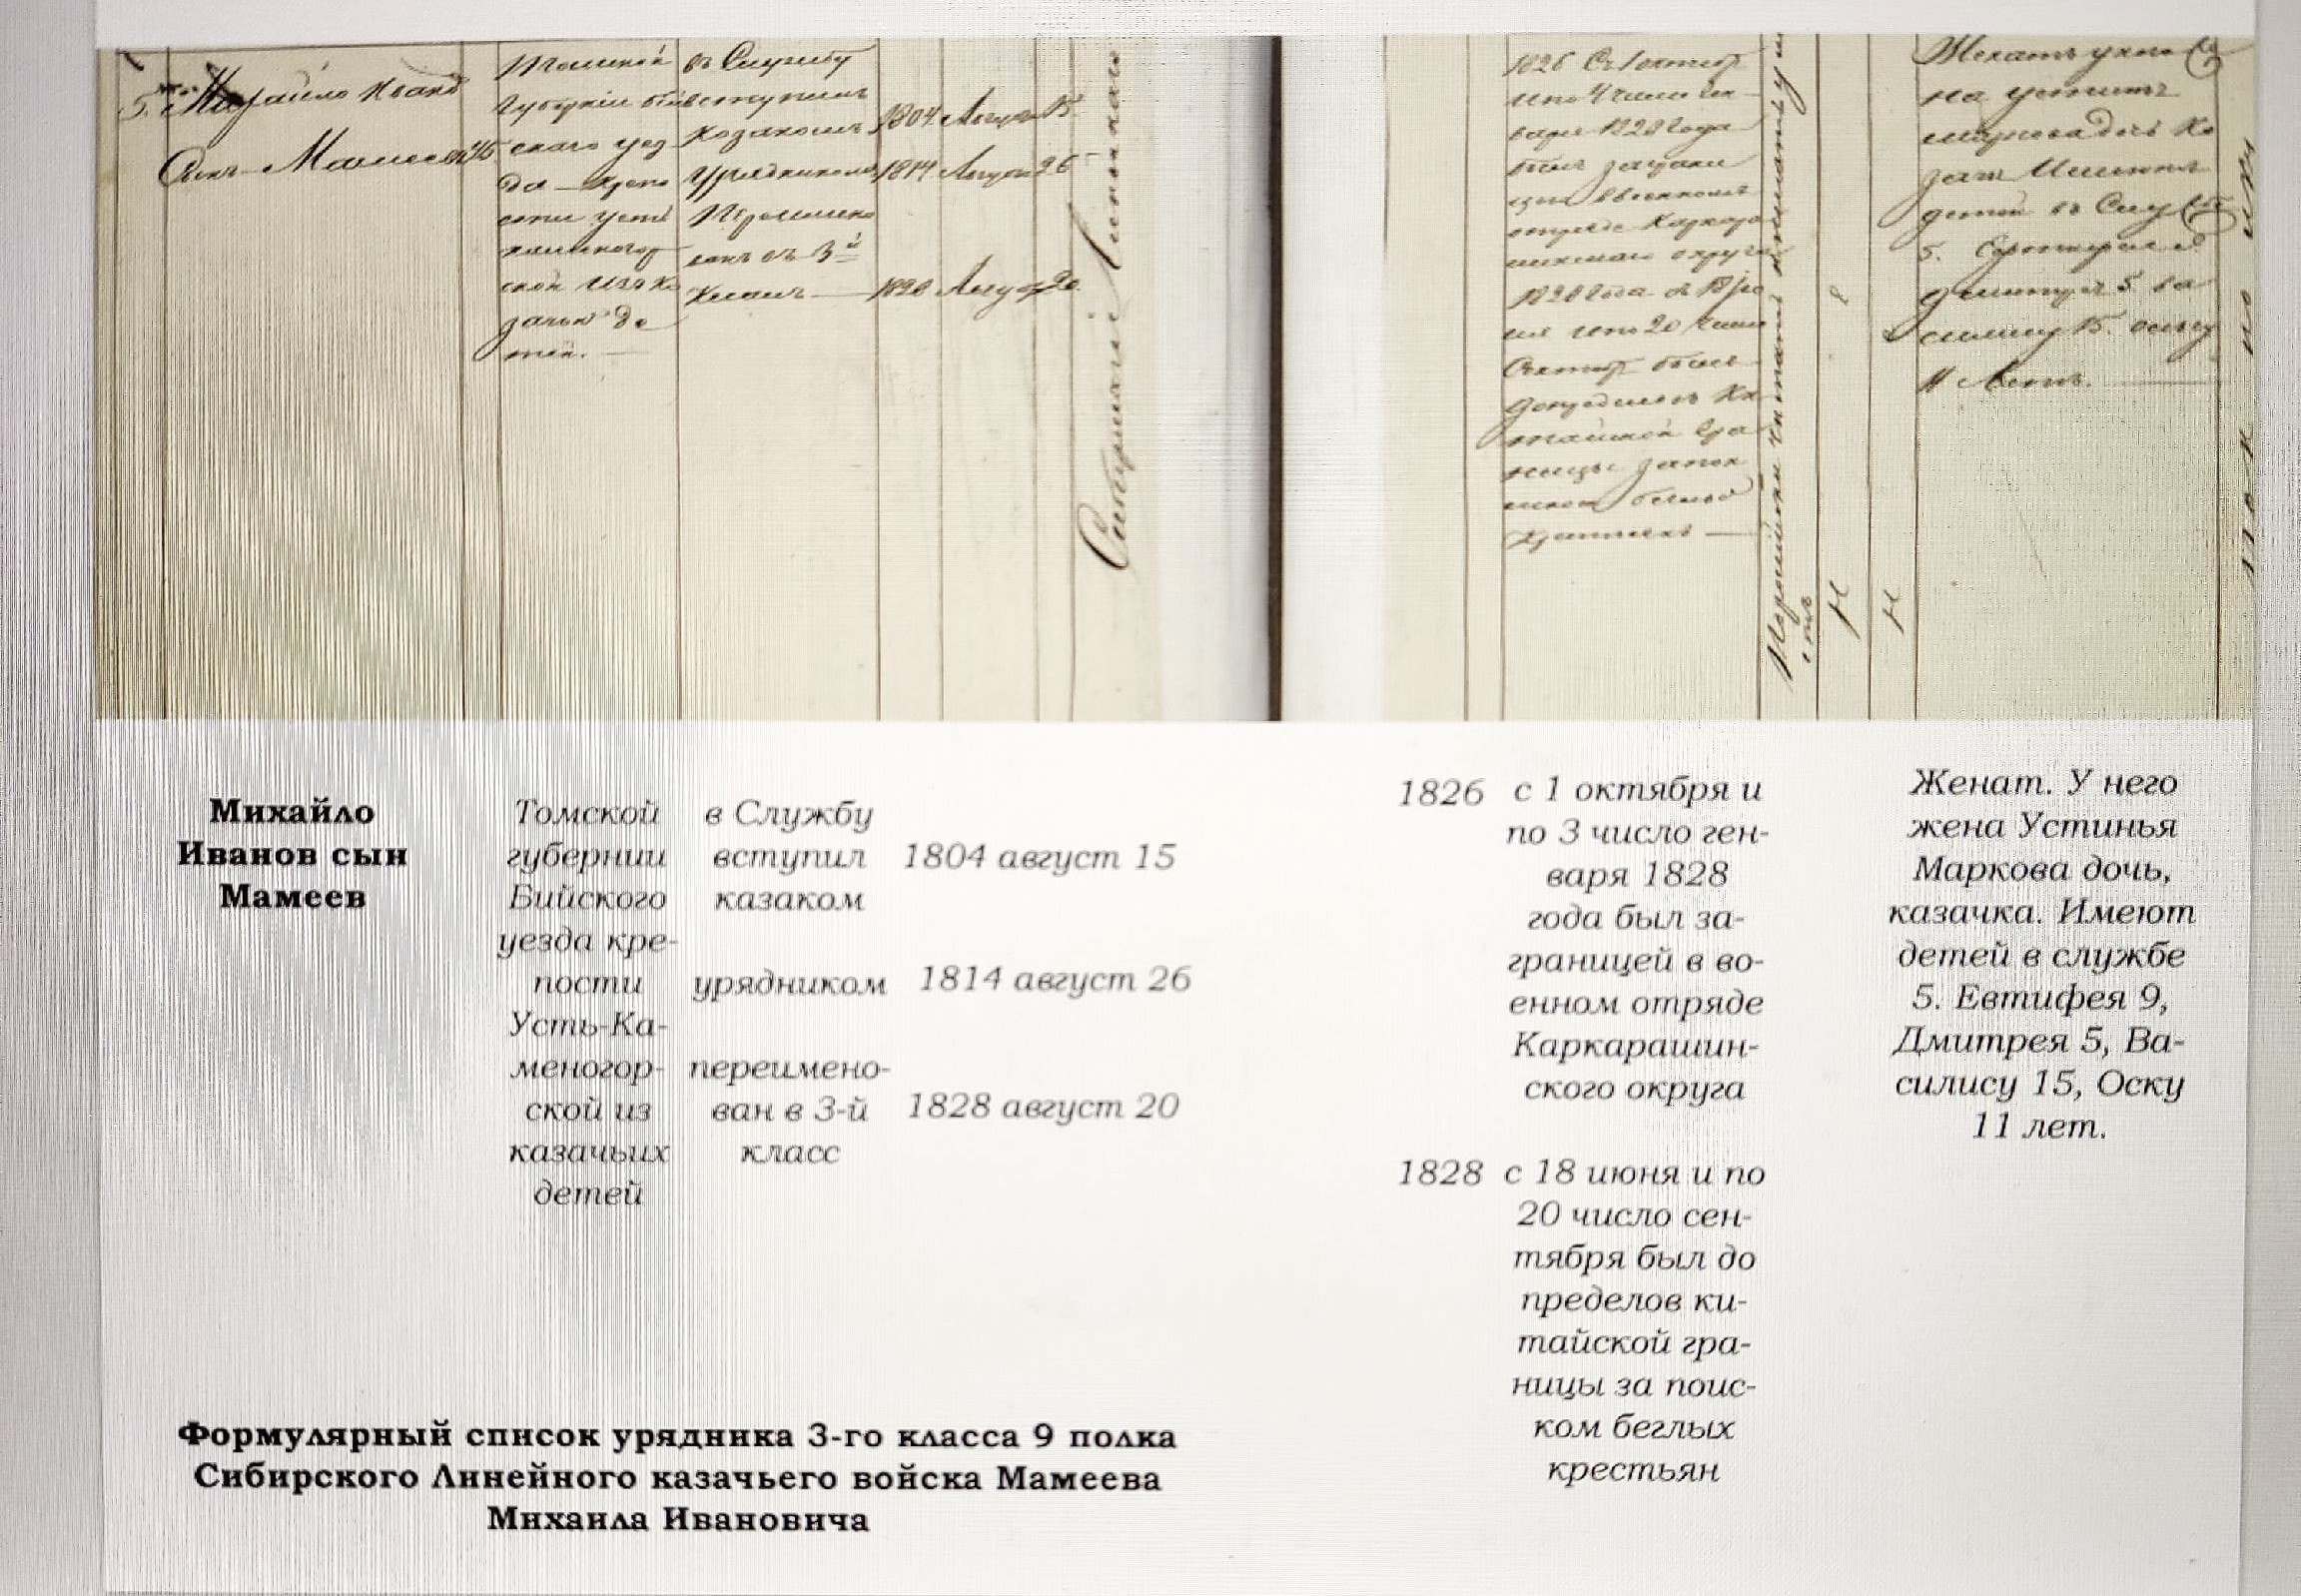 5. Михайло Иванов
Сын Мамеев 45
Томской
губернии бий
скаго уез
да крепо
сти усть
каменогор
ской изъ ка
зачьих де
тей.
въ Службу
вступилъ
Козакомъ 1804 Август 15
Урядникомъ 1814 Август 26
Переимено
ванъ въ 3й
Класъ 1828 Август 20
Сибирскаго Линейнаго
1826 Съ 1 октяб
ипо Число ген
варя 1828 года
былъ заграни
цею ввоенномъ
отряде Каркара
линскаго округа
1828 года с 18 Ию
ня ипо 20 Число
Сентяб былъ
допределовъ Ки
тайской Гра
ницы запои
скомъ беглых
Крестьян
читать и писать умеет
Женатъ унего
на устинье
маркова дочь Ка
зач Имеют
детей въ Служ
5.
дмитрея 5. ва
силису 15. оску
11 Летъ.
Михайло
Иванов сын
Мамеев
Томской
губернии
Бийского
уезда кре-
пости
Усть-Ка-
меногор-
ской из
казачьих
детей
в Службу
вступил
казаком
1804 август 15
урядником
1814 август 26
переимено-
ван в 3-й
класс
1828 август 20
1826 с 1 октября и
по 3 число ген-
варя 1828
года был за-
границей в во-
енном отряде
Каркарашин-
ского округа
1828 с 18 июня и по
20 число сен-
тября был до
пределов ки-
тайской гра-
ницы за поис-
ком беглых
крестьян
Женат. У него
жена Устинья
Маркова дочь,
казачка. Имеют
детей в службе
5. Евтифея 9,
Дмитрея 5, Ва-
силису 15, Оску
11 лет.
Формулярный список урядника 3-го класса 9 полка
Сибирского Линейного казачьего войска Мамеева
Михаила Ивановича